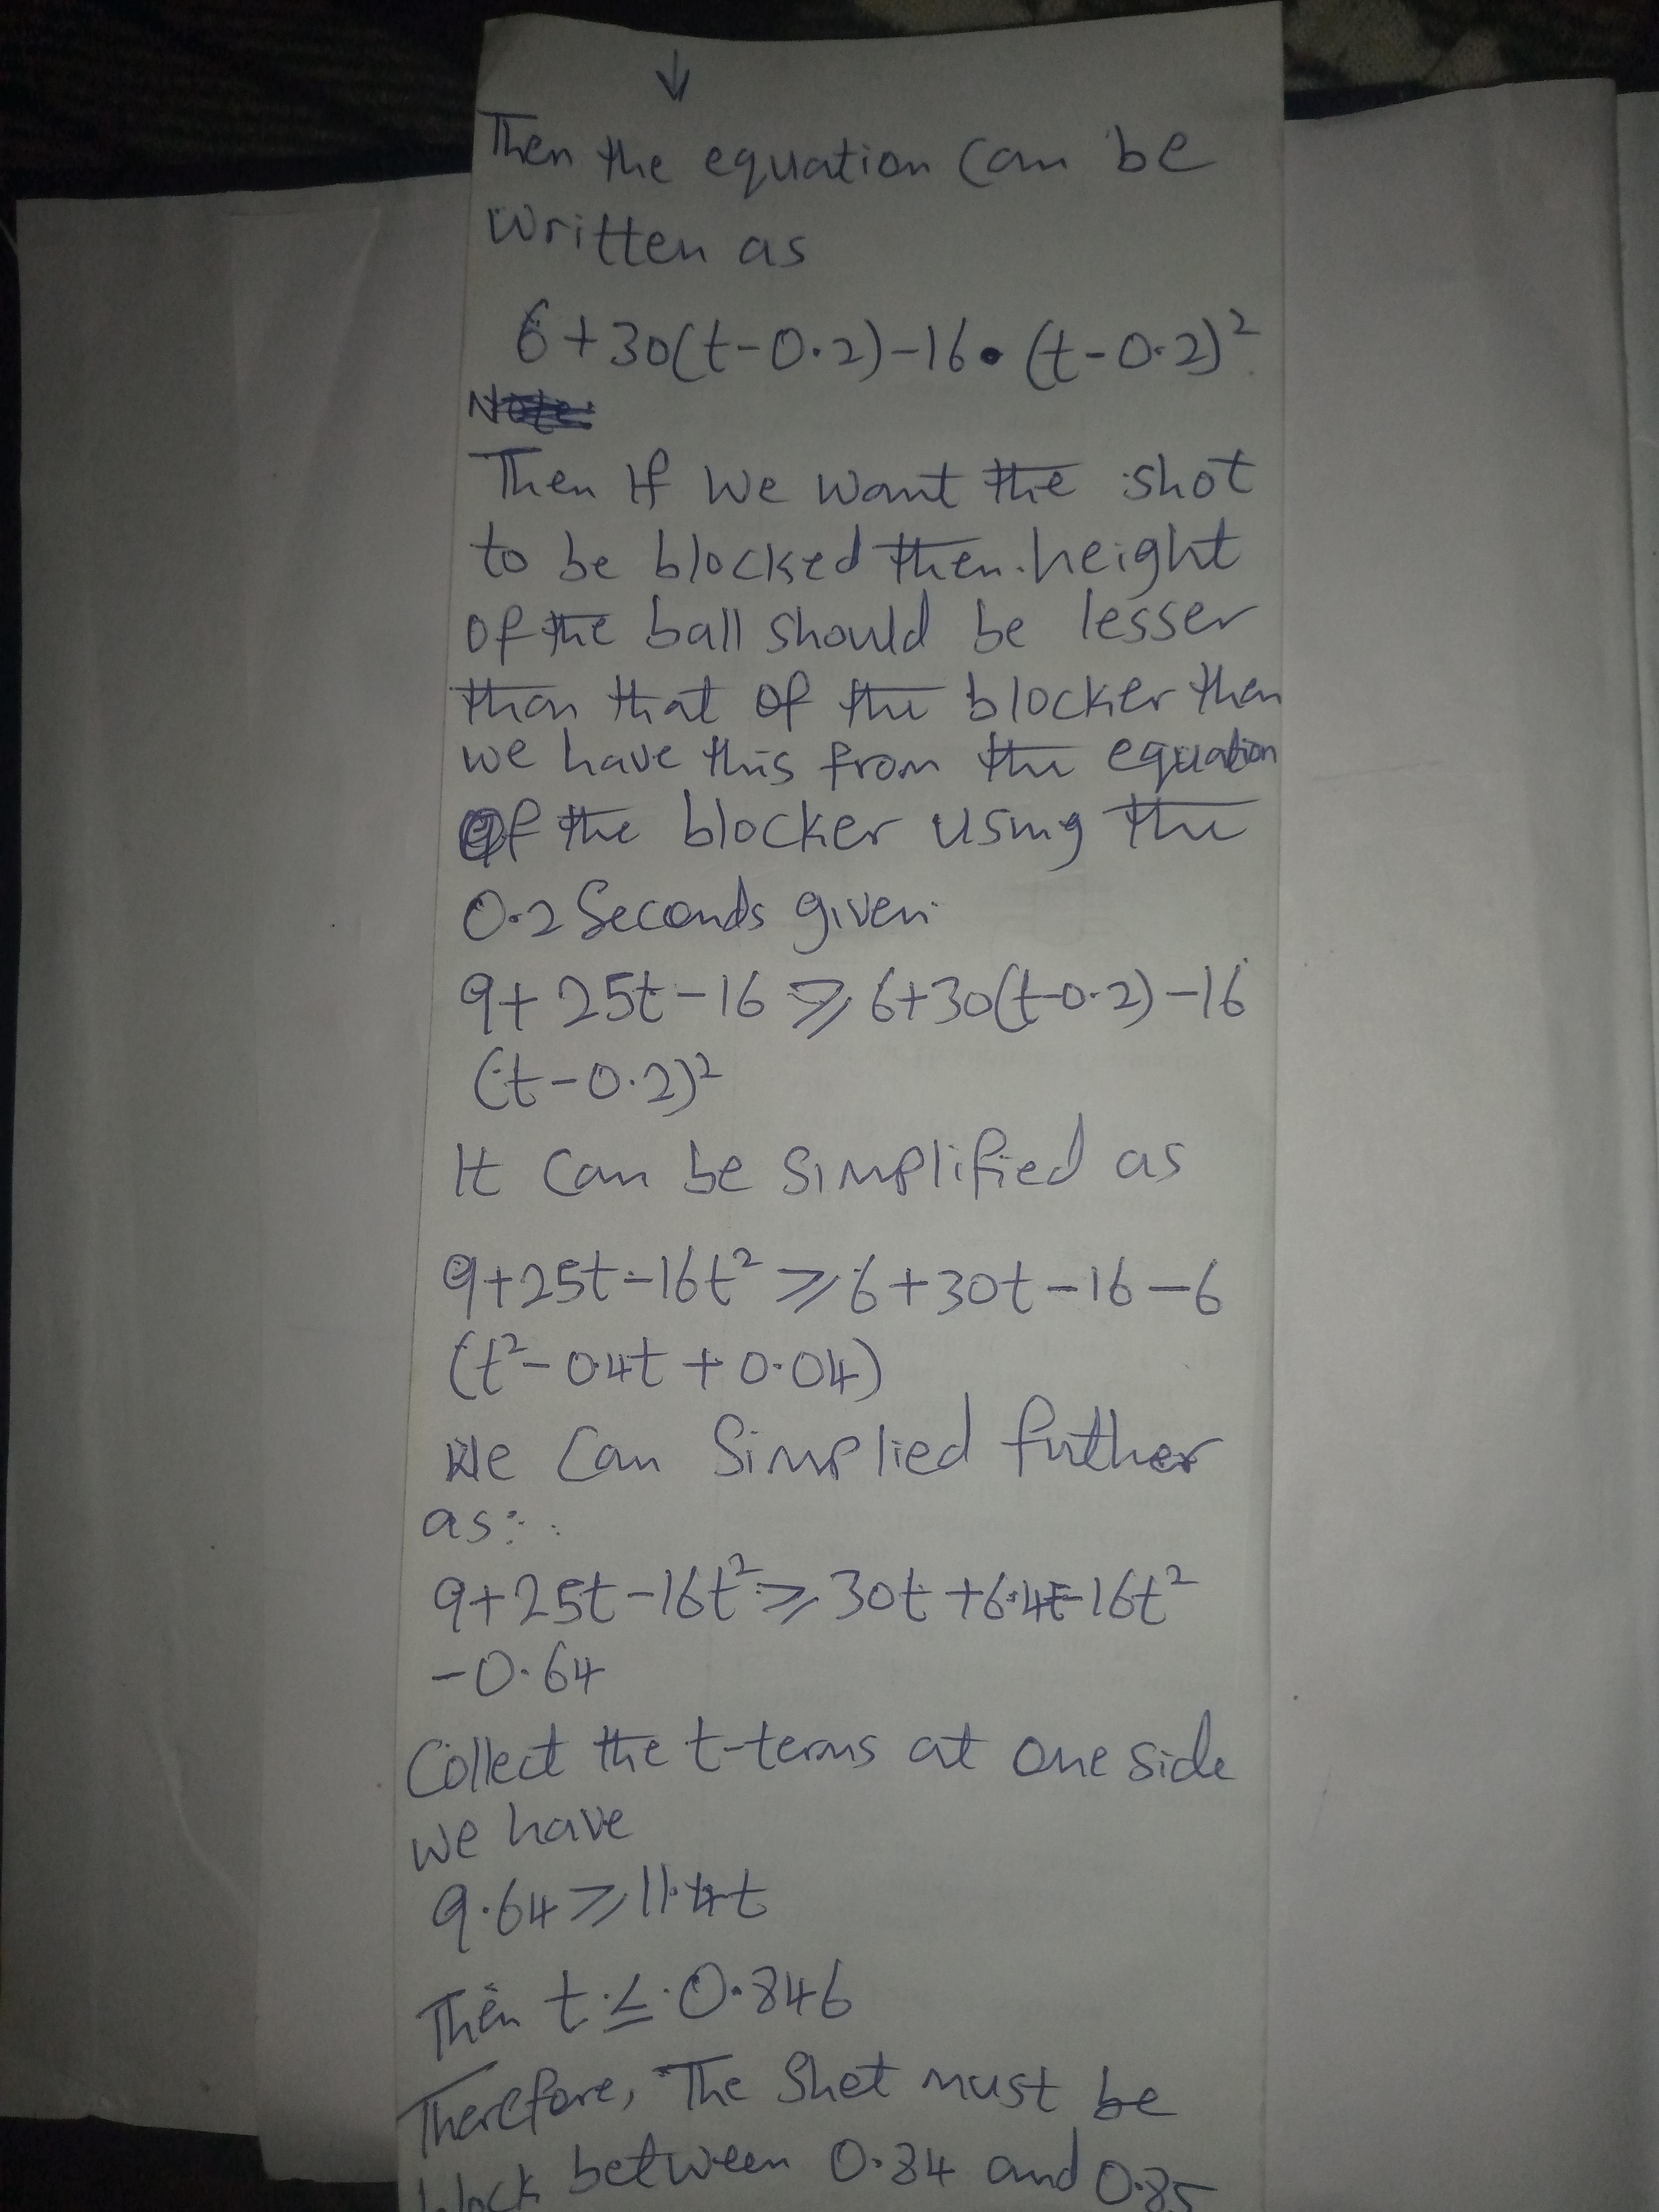 ↓
Then the equation can be
written as
6+30(t-0.2)-16•(t-0.2)²
Then If we want the shot
to be blocked then height
of the ball should be lesser
than that of the blocker then
we have this from the equation
of the blocker using the
0.2 Seconds given.
9+25t-16 ⩾ 6+30(t-0.2)-16
(t-0.2)²
It can be simplified as
9+25t-16t² ⩾ 6+30t-16-6
(t²-0.4t+0.04)
We can Simplied futher
as:
9+25t-16t² ⩾ 30t+6.4t-16t²
-0.64
Collect the t-terms at one side
we have
9.64 ⩾ 11.4t
Then t ≤ 0.846
Therefore, The Shot must be
block between 0.34 and 0.85